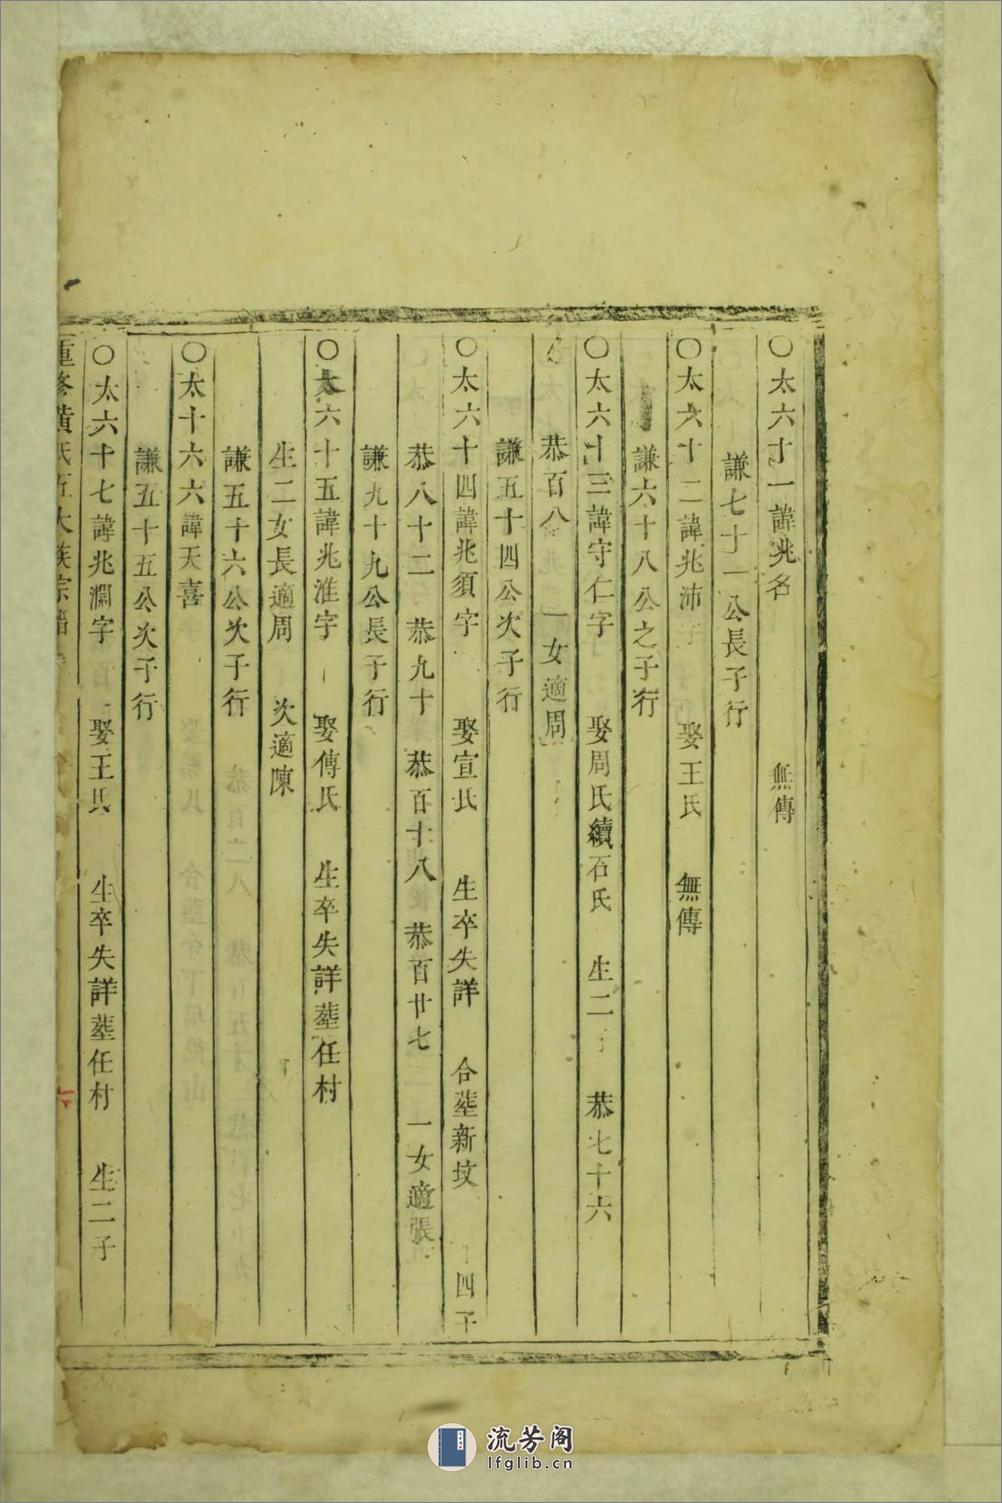 ○太六十一諱兆名 無傳
謙七十一公長子行
○太六十二諱兆沛字 娶王氏 無傳
謙六十八公之子行
○太六十三諱守仁字 娶周氏續石氏 生二子 恭七十六
恭百八 一女適周
謙五十四公次子行
○太六十四諱兆須字 娶宣氏 生卒失詳 合塟新坟 四子
恭八十二 恭九十 恭百十八 恭百廿七 一女適張
謙九十九公長子行
○太六十五諱兆淮字 娶傅氏 生卒失詳塟任村
生二女長適周 次適陳
謙五十六公次子行
○太十六六諱天喜
謙五十五公次子行
○太六十七諱兆澗字 娶王氏 生卒失詳塟任村 生二子
重修黃氏五大族宗譜
流芳阁
lfglib.cn